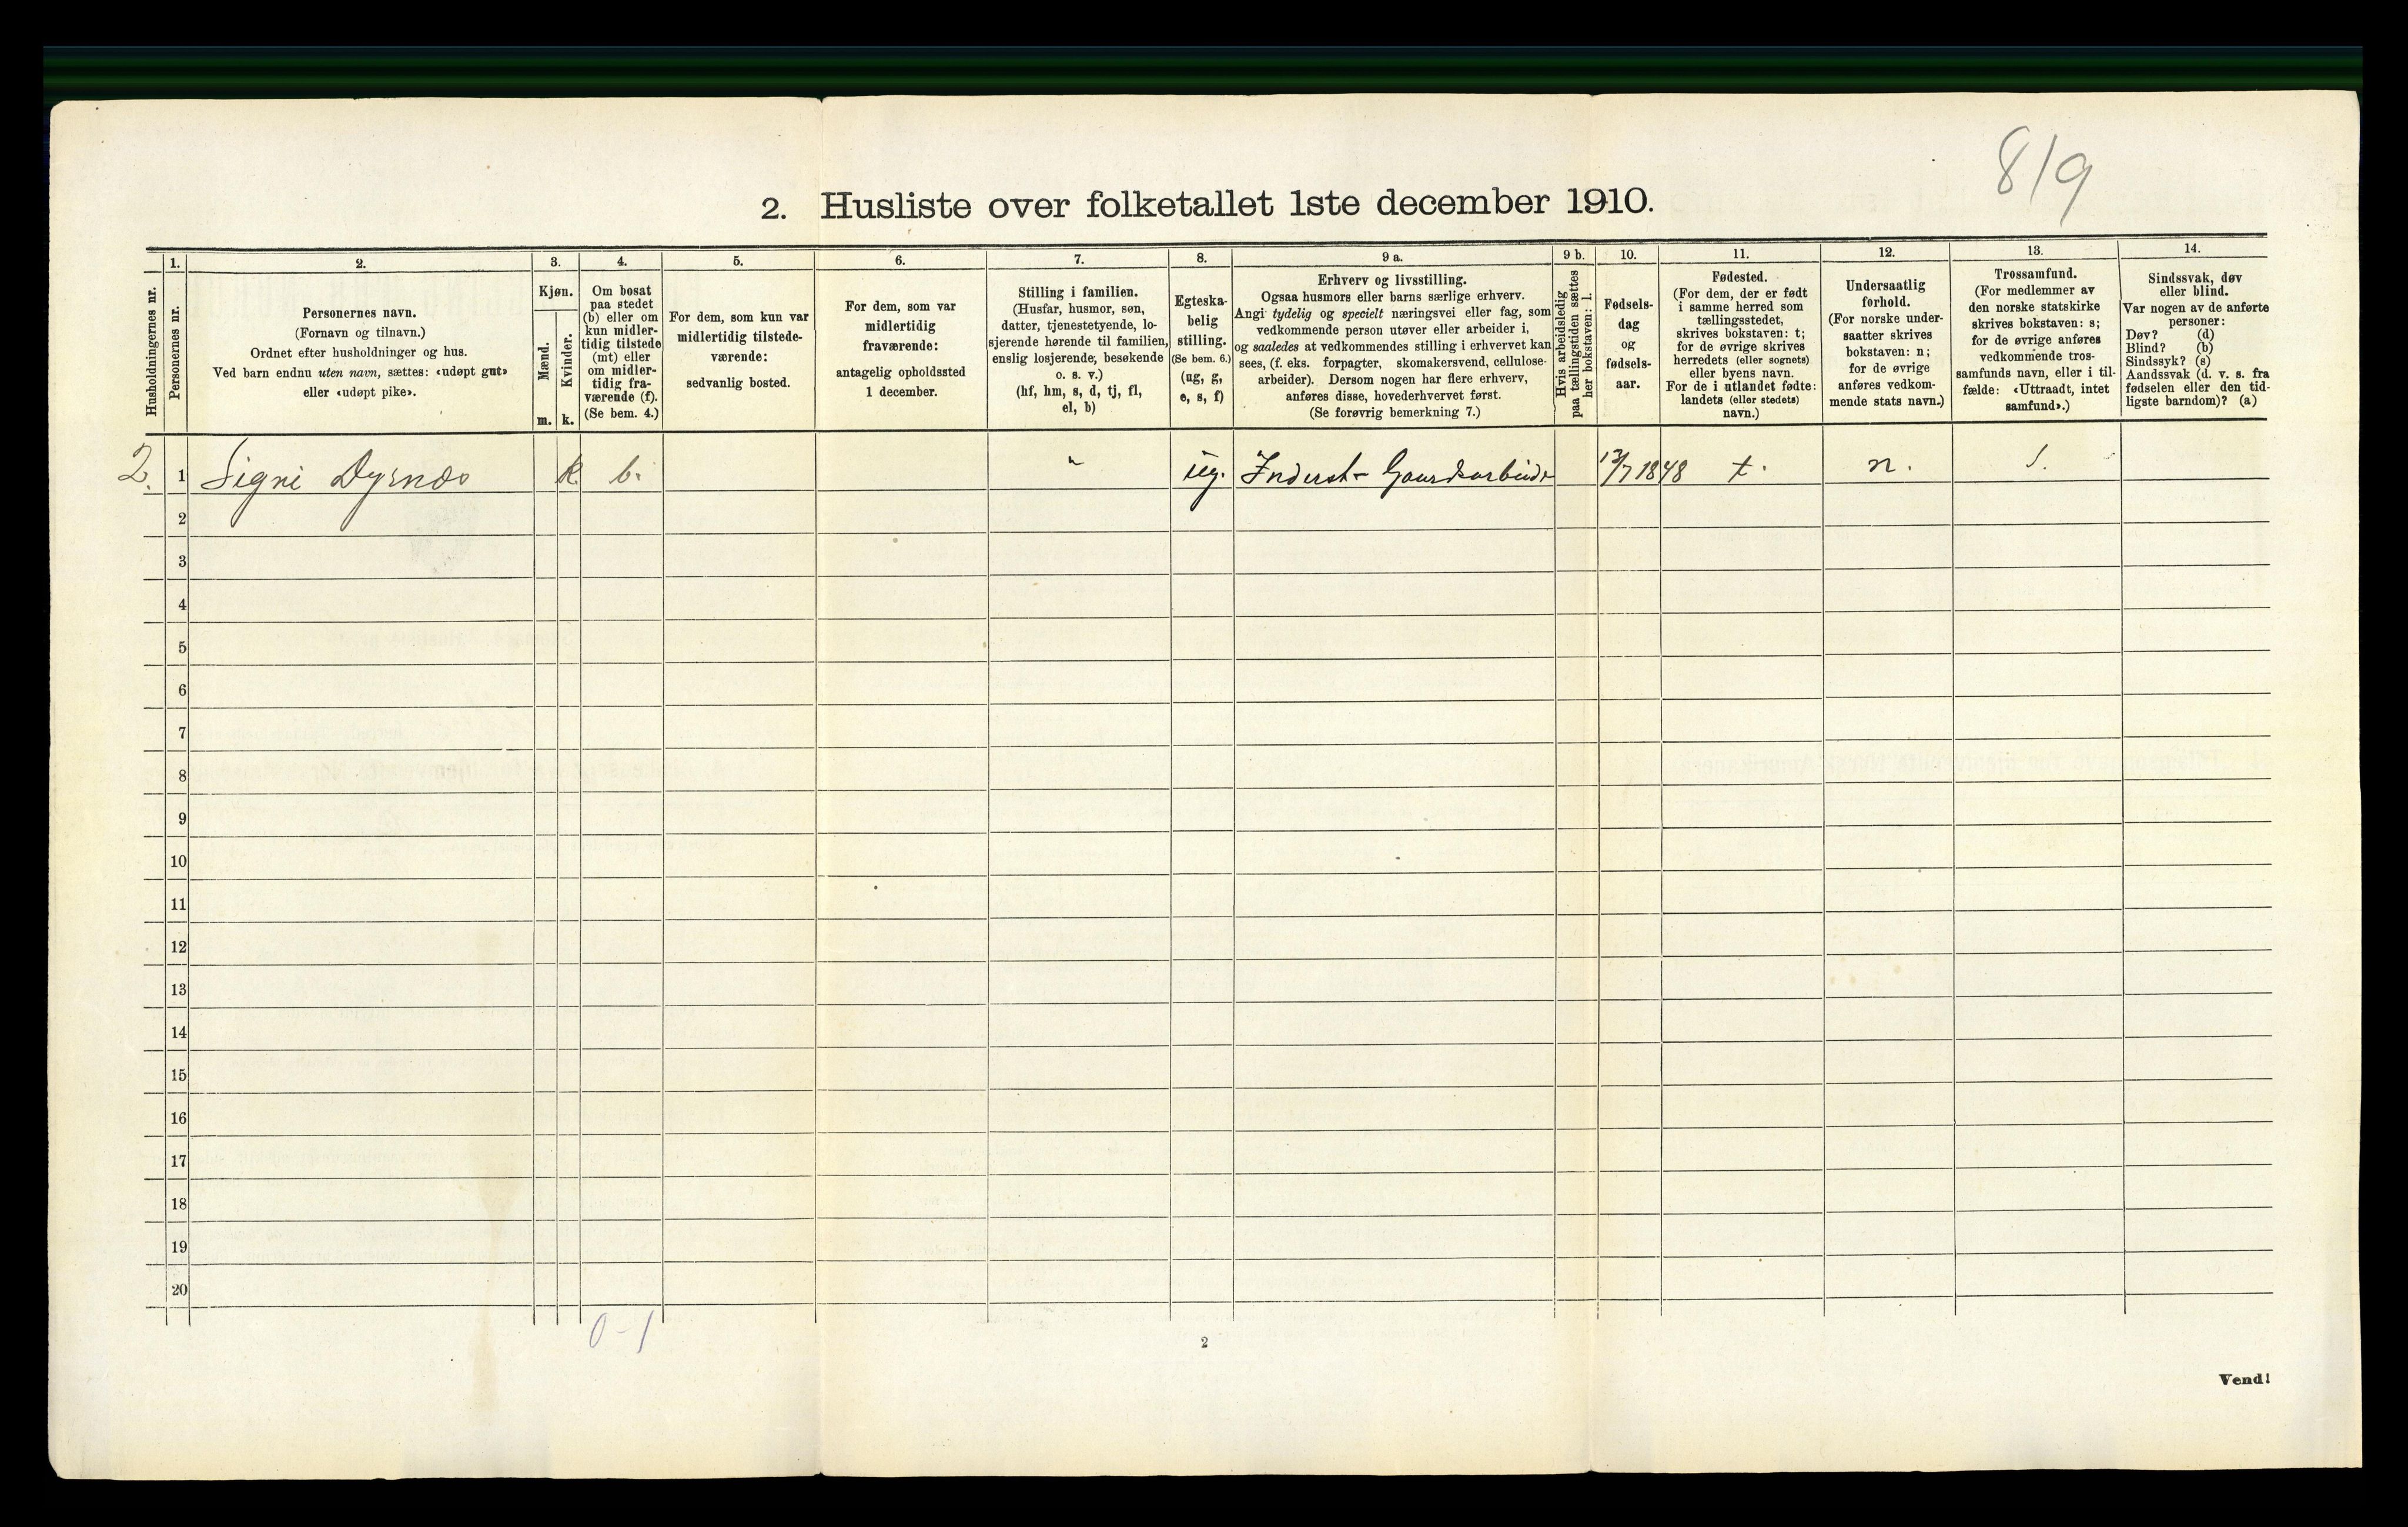 8/9
2. Husliste over folketallet 1ste december 1910.
Husholdningernes nr.
1.
Personernes nr.
2.
Personernes navn.
(Fornavn og tilnavn.)
Ordnet efter husholdninger og hus.
Ved barn endnu uten navn, sættes: «udøpt gut»
eller «udøpt pike».
3.
Kjøn.
Mænd.
Kvinder.
m. k.
4.
Om bosat
paa stedet
(b) eller om
kun midler-
tidig tilstede
(mt) eller
om midler-
tidig fra-
værende (f).
(Se bem. 4.)
5.
For dem, som kun var
midlertidig tilstede-
værende:
sedvanlig bosted.
6.
For dem, som var
midlertidig
fraværende:
antagelig opholdssted
1 december.
7.
Stilling i familien.
(Husfar, husmor, søn,
datter, tjenestetyende, lo-
sjerende hørende til familien,
enslig losjerende, besøkende
o. s. v.)
(hf, hm, s, d, tj, fl,
el, b)
8.
Egteska-
belig
stilling.
(Se bem. 6.)
(ug, g,
e, s, f)
9 a.
Erhverv og livsstilling.
Ogsaa husmors eller barns særlige erhverv.
Angi tydelig og specielt næringsvei eller fag, som
vedkommende person utøver eller arbeider i,
og saaledes at vedkommendes stilling i erhvervet kan
sees, (f. eks. forpagter, skomakersvend, cellulose-
arbeider). Dersom nogen har flere erhverv,
anføres disse, hovederhvervet først.
(Se forøvrig bemerkning 7.)
9 b.
Hvis arbeidsledig
paa tællingstiden sættes
her bokstaven: l.
10.
Fødsels-
dag
og
fødsels-
aar.
11.
Fødested.
(For dem, der er født
i samme herred som
tællingsstedet,
skrives bokstaven: t;
for de øvrige skrives
herredets (eller sognets)
eller byens navn.
For de i utlandet fødte:
landets (eller stedets)
navn.)
12.
Undersaatlig
forhold.
(For norske under-
saatter skrives
bokstaven: n;
for de øvrige
anføres vedkom-
mende stats navn.)
13.
Trossamfund.
(For medlemmer av
den norske statskirke
skrives bokstaven: s;
for de øvrige anføres
vedkommende tros-
samfunds navn, eller i til-
fælde: «Uttraadt, intet
samfund».)
14.
Sindssvak, døv
eller blind.
Var nogen av de anførte
personer:
Døv? (d)
Blind? (b)
Sindssyk? (s)
Aandssvak (d. v. s. fra
fødselen eller den tid-
ligste barndom)? (a)
2. 1 Signi Dyrnæs k b. " ug. Inderst - Gaardsarbeide 13/7 1848 t. n. s.
2
3
4
5
6
7
8
9
10
11
12
13
14
15
16
17
18
19
20
0-1
2
Vend!